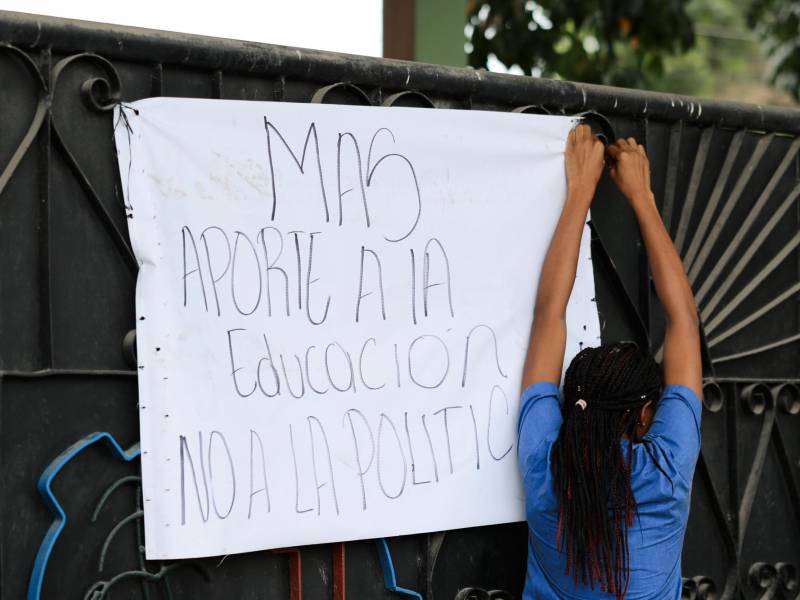 MAS
APORTE A lA
Educación
NO A LA POLITIC